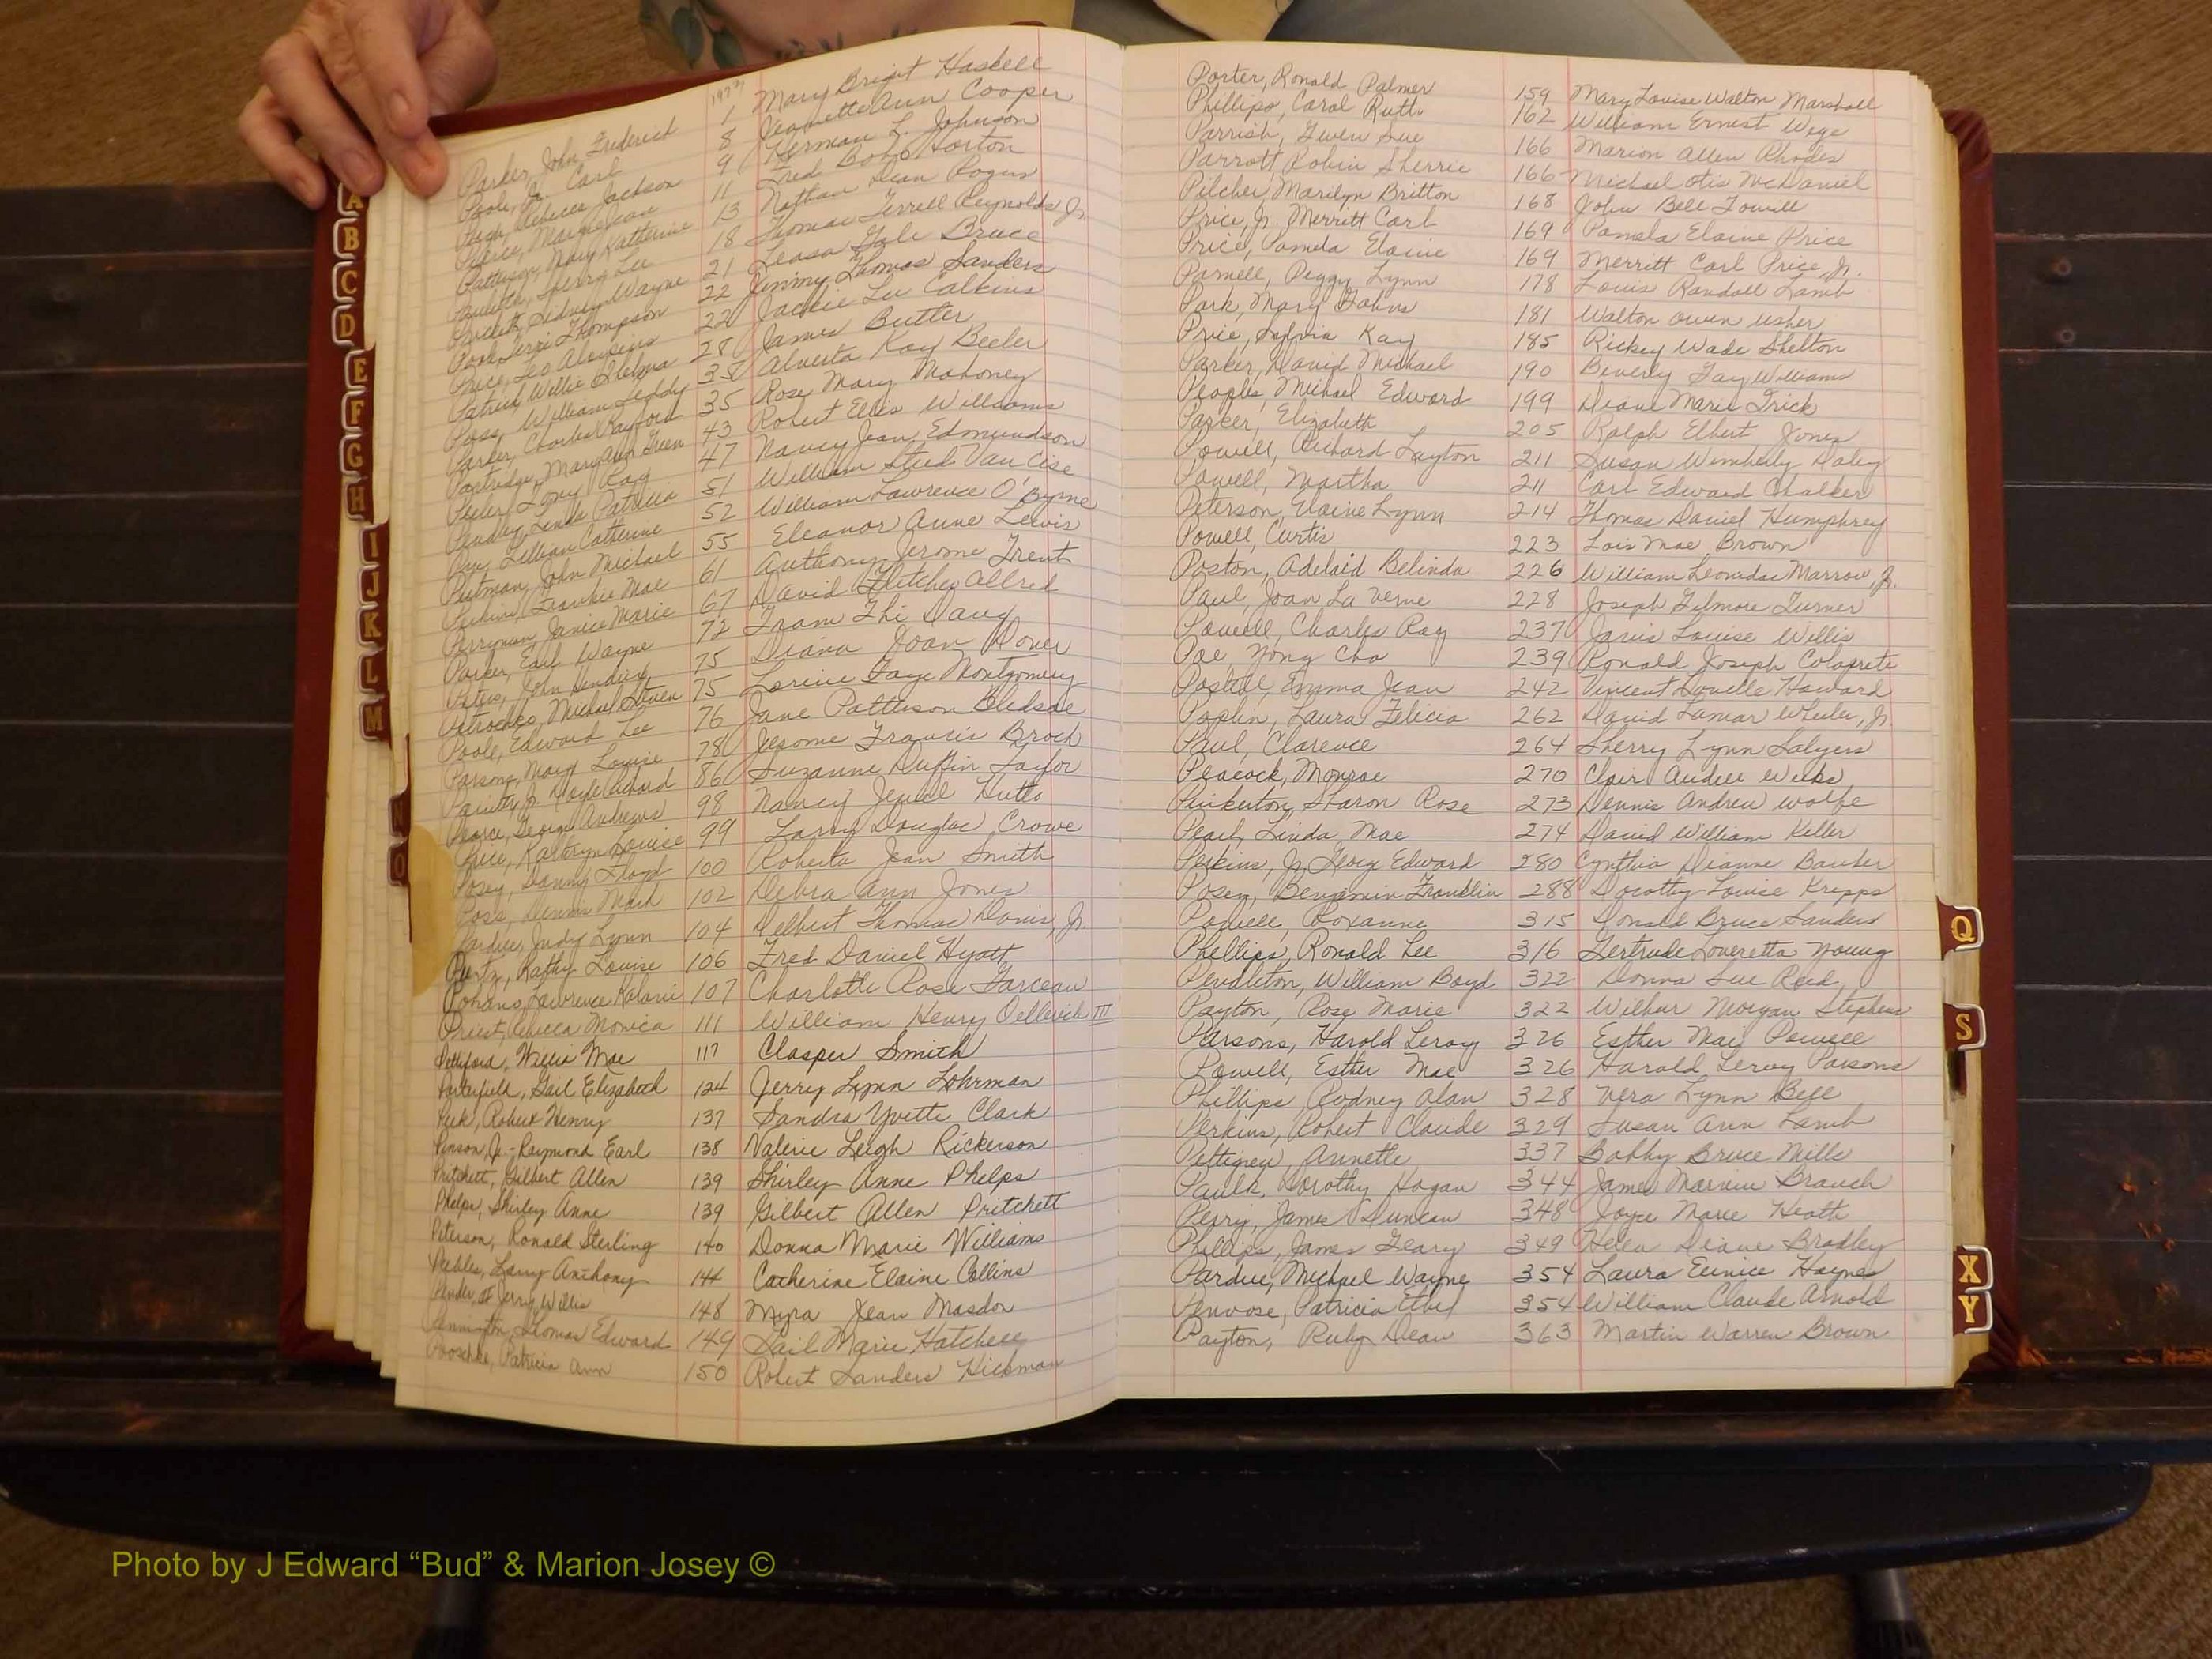 1977
Parker, John Frederick 1 Mary Bright Haskell
Poole, Jr. Carl 8 Jeanette Ann Cooper
Pugh, Rebecca Jackson 9 Herman L. Johnson
Pierce, Margie Jean 11 Fred Bobo Horton
Patterson, Mary Katherine 13 Nathan Dean Rogers
Pruitt, Sherry Lee 18 Thomas Terrell Reynolds Jr.
Puckett, Sidney Wayne 21 Leasa Gale Bruce
Pool, Terri Thompson 22 Jimmy Thomas Sanders
Price, Leo 22 Jackie Lu Calkins
Patrick, Willie 28 James Butler
Pass, William Teddy 35 Alversta Kay Beeler
Parker, Charles Rayford 35 Rose Mary Mahoney
Partridge, Mary Ann Green 43 Robert Ellis Williams
Peeler, Tony Ray 47 Nancy Jean Edmundson
Pendley, Linda Patricia 51 William Steed Van Cise
Lillian Catherine 52 William Lawrence O'Byrne
Putman, John Michael 55 Eleanor Anne Lewis
Perkins, Frankie Mae 61 Anthony Jerome Trent
Perryman, Janice Marie 67 David Fletcher Allred
Parker, Earl Wayne 72 Tram Thi Dang
Peters, John Hendrick 75 Diana Joan Dover
Michael Steven 75 Lorene Faye Montgomery
Poole, Edward Lee 76 Jane Patterson Bledsoe
Parsons, Mary Louise 78 Jerome Francis Brock
Jr. Richard 86 Suzanne Duffin Taylor
Pearce, George Andrews 98 Nancy Jewel Hutto
Price, Kathryn Louise 99 Larry Douglas Crowe
Posey, Danny Floyd 100 Roberta Jean Smith
Poss, Dennis Mack 102 Debra Ann Jones
Pardue, Judy Lynn 104 Delbert Thomas Davis, Jr.
Kathy Louise 106 Fred Daniel Hyatt
Lawrence Kalani 107 Charlotte Rose Garceau
Priest, Rebecca Monica 111 William Henry Oellerich III
Pettiford, Willie Mae 117 Clasper Smith
Porterfield, Gail Elizabeth 124 Jerry Lynn Lohrman
Peek, Robert Henry 137 Sandra Yvette Clark
Pinson, Jr. Raymond Earl 138 Valerie Leigh Rickerson
Pritchett, Gilbert Allen 139 Shirley Anne Phelps
Phelps, Shirley Anne 139 Gilbert Allen Pritchett
Peterson, Ronald Sterling 140 Donna Marie Williams
Peebles, Larry Anthony 144 Catherine Elaine Collins
Jerry Willis 148 Myra Jean Masdon
Pennington, Thomas Edward 149 Gail Marie Hatchell
Patricia Ann 150 Robert Sanders Hickman
Porter, Ronald Palmer 159 Mary Louise Walton Marshall
Phillips, Carol Ruth 162 William Ernest Wege
Parrish, Gwen Sue 166 Marion Allen Rhodes
Parrott, Robin Sherrie 166 Michael Otis McDaniel
Pilcher, Marilyn Britton 168 John Bell Towill
Price, Jr. Merritt Carl 169 Pamela Elaine Price
Price, Pamela Elaine 169 Merritt Carl Price, Jr.
Parnell, Peggy Lynn 178 Louis Randall Lamb
Park, Mary Johns 181 Walton Owen Usher
Price, Sylvia Kay 185 Rickey Wade Shelton
Parker, David Michael 190 Beverly Fay Williams
Peoples, Michael Edward 199 Diane Marie Frick
Parker, Elizabeth 205 Ralph Elbert Jones
Powell, Richard Layton 211 Susan Wimberly Daley
Powell, Martha 211 Carl Edward Chalker
Peterson, Elaine Lynn 214 Thomas Daniel Humphrey
Powell, Curtis 223 Lois Mae Brown
Poston, Adelaid Belinda 226 William Leonidas Marrow, Jr.
Paul, Joan La Verne 228 Joseph Gilmore Turner
Powell, Charles Ray 237 Janis Louise Willis
Pae, Yong Cha 239 Ronald Joseph Colaprete
Postell, Emma Jean 242 Vincent Lovelle Howard
Poplin, Laura Felicia 262 David Lamar Wheeler, Jr.
Paul, Clarence 264 Sherry Lynn Salyers
Peacock, Monroe 270 Clair Audell Weeks
Pinkerton, Sharon Rose 273 Dennis Andrew Wolfe
Peach, Linda Mae 274 David William Keller
Perkins, Jr. George Edward 280 Cynthia Dianne Barber
Posey, Benjamin Franklin 288 Dorothy Louise Kripps
Powell, Roxanne 315 Donald Bruce Sanders
Phillips, Ronald Lee 316 Gertrude Loveretta Young
Pendleton, William Boyd 322 Donna Sue Reed
Payton, Rose Marie 322 Wilbur Morgan Stephens
Parsons, Harold Leroy 326 Esther Mae Powell
Powell, Esther Mae 326 Harold Leroy Parsons
Phillips, Rodney Alan 328 Vera Lynn Bell
Perkins, Robert Claude 329 Susan Ann Lamb
Pettigrew, Annette 337 Bobby Bruce Mills
Paulk, Dorothy Hogan 344 James Marvin Branch
Perry, James Duncan 348 Joyce Marie Heath
Phillips, James Geary 349 Helen Diane Bradley
Pardue, Michael Wayne 354 Laura Eunice Haynes
Penrose, Patricia Ethel 354 William Claude Arnold
Payton, Ruby Dean 363 Martin Warren Brown
A
B
C
D
E
F
G
H
I
J
K
L
M
N
O
Q
S
X
Y
Photo by J Edward “Bud” & Marion Josey ©